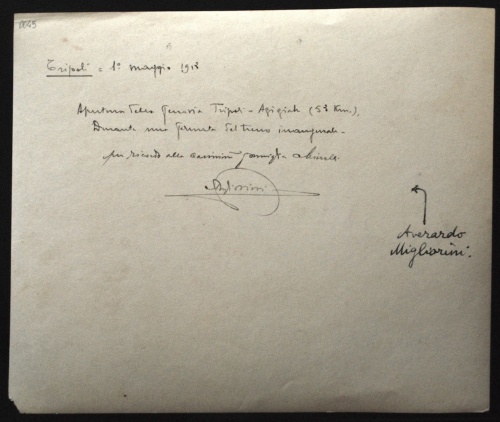 Tripoli = 1º maggio 1913
Apertura della ferrovia Tripoli - Azizia (53 Km).
Durante una fermata del treno inaugurale -
per ricordo alla carissima famiglia
Averardo
Migliorini.